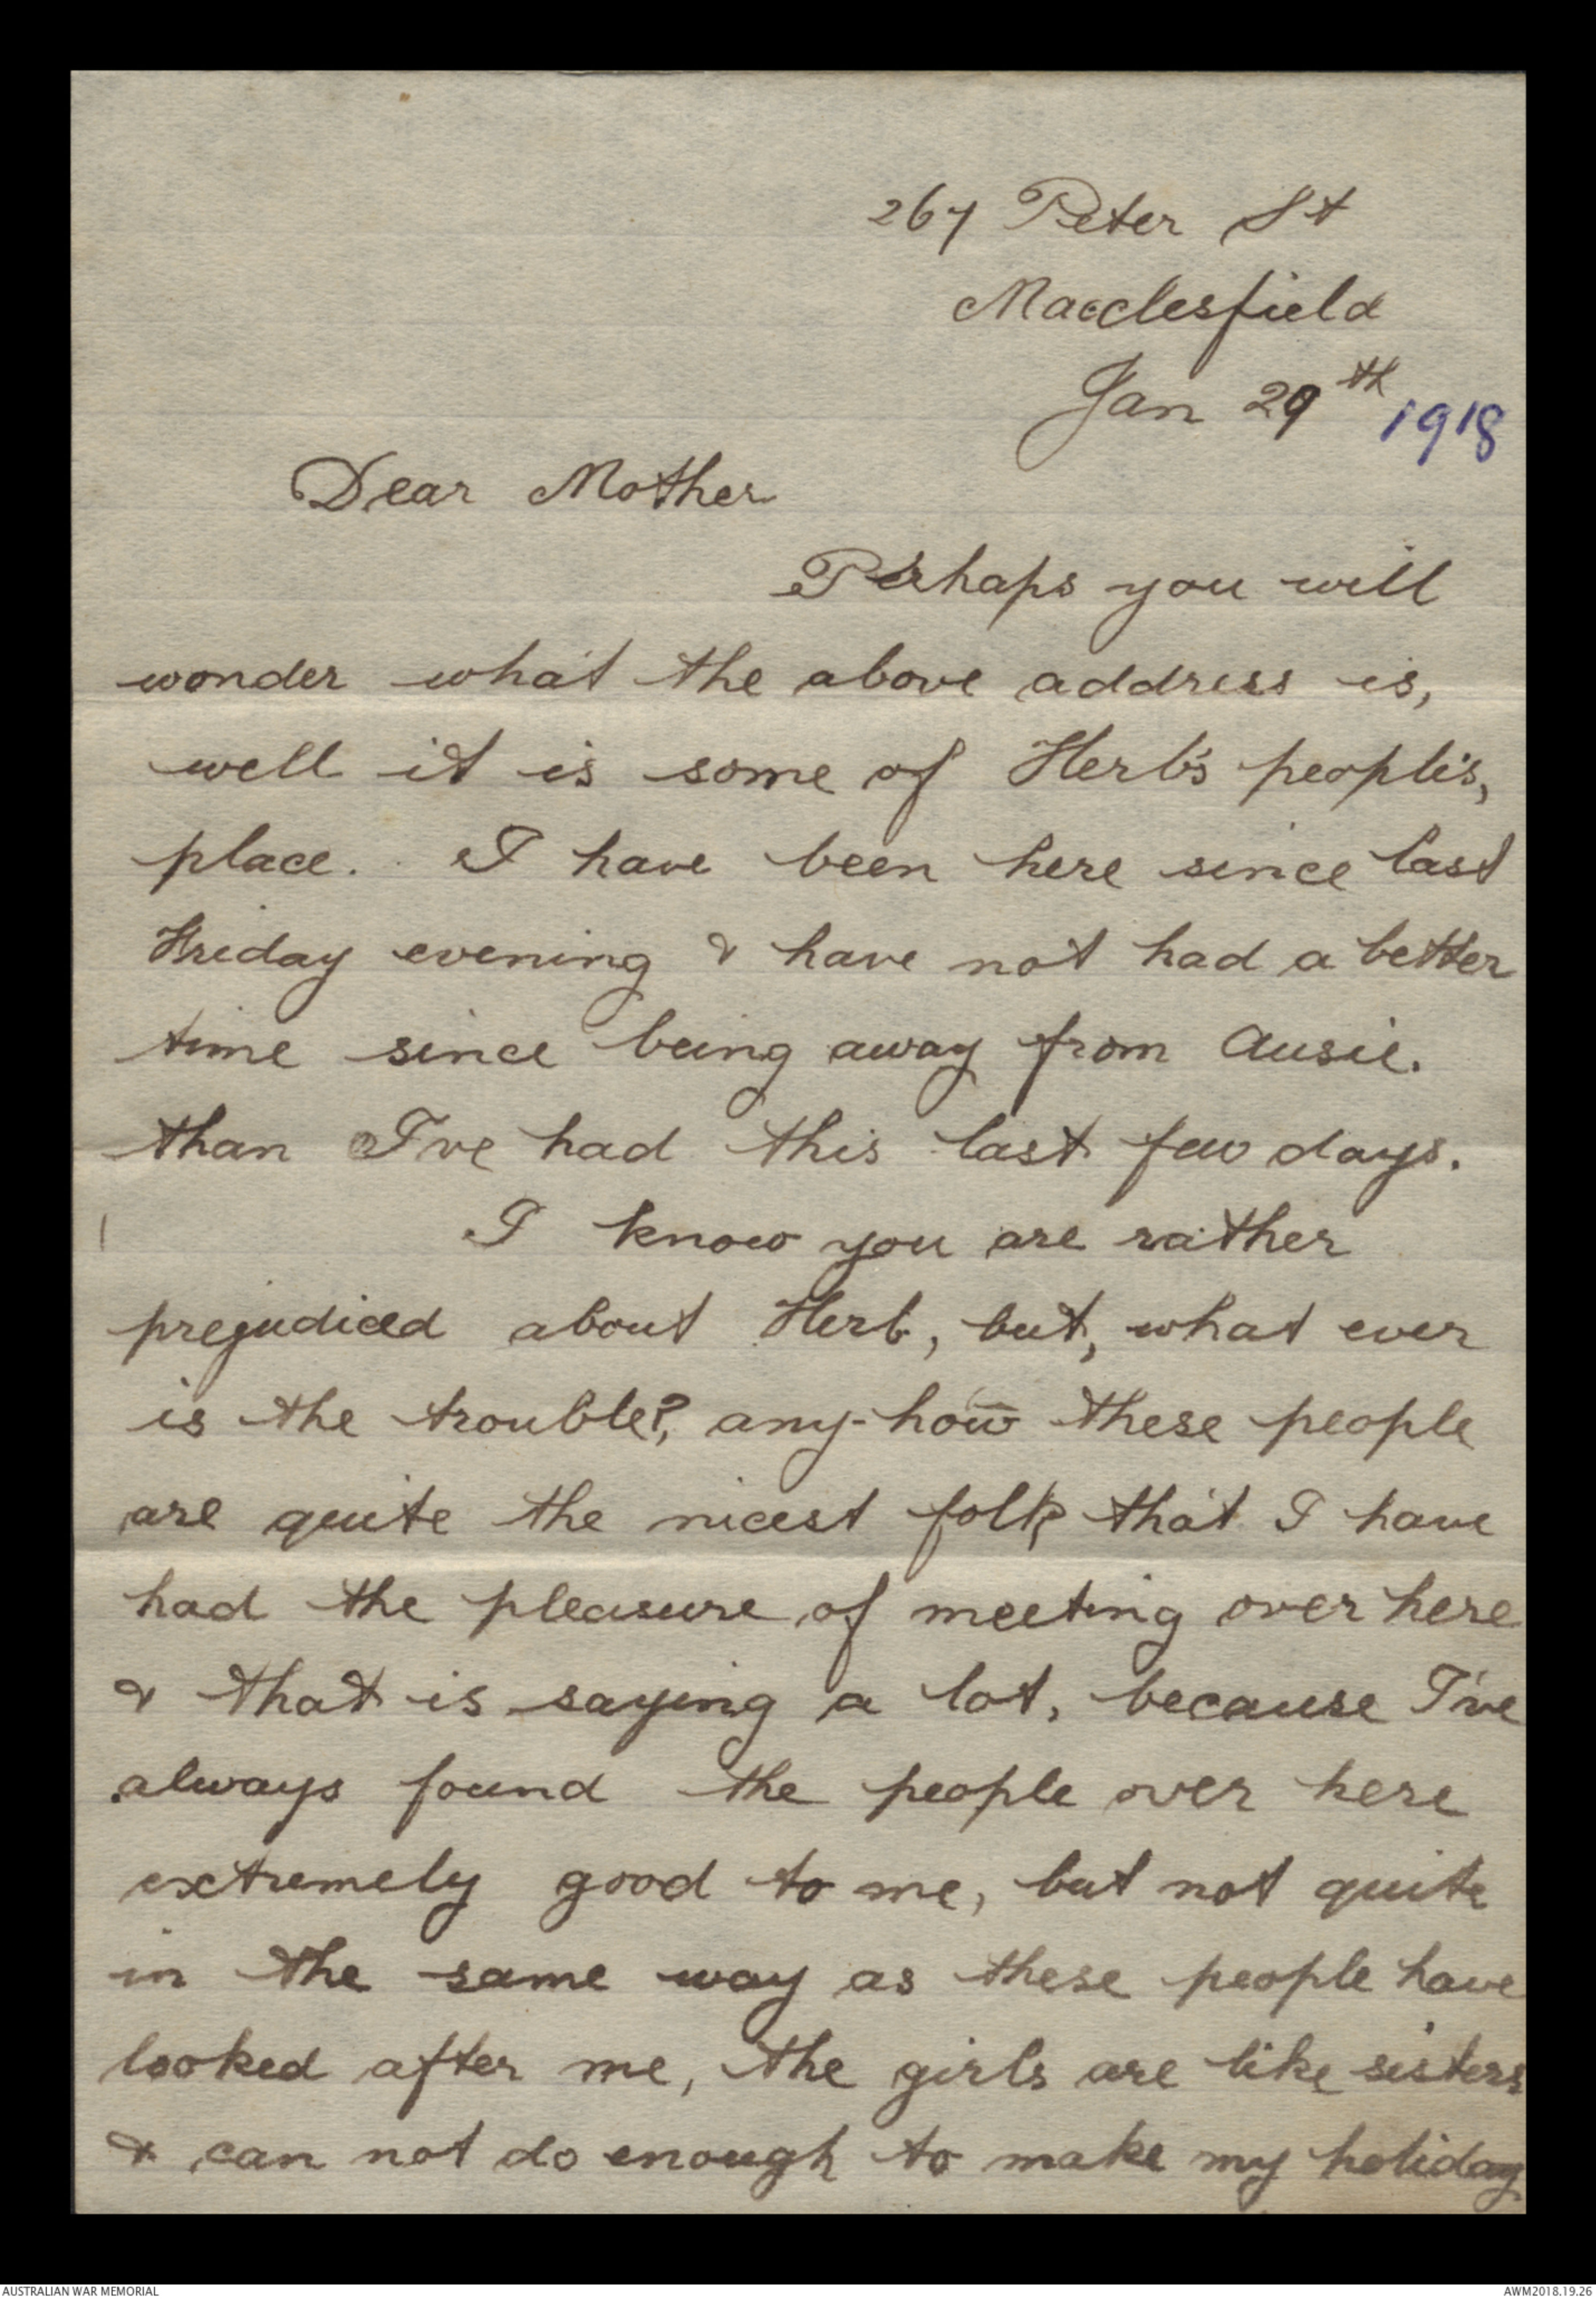 267 Peter St
Macclesfield
Jan 29th 1918
Dear Mother
Perhaps you will
wonder what the above address is,
well it is some of Herb's people's,
place. I have been here since last
Friday evening & have not had a better
time since being away from Ausie.
than I've had this last few days.
I know you are rather
prejudiced about Herb, but, what ever
is the trouble?, any-how these people
are quite the nicest folk that I have
had the pleasure of meeting over here
& that is saying a lot, because I've
always found the people over here
extremely good to me, but not quite
in the same way as these people have
looked after me, the girls are like sisters
& can not do enough to make my holiday
AUSTRALIAN WAR MEMORIAL
AWM2018.19.26